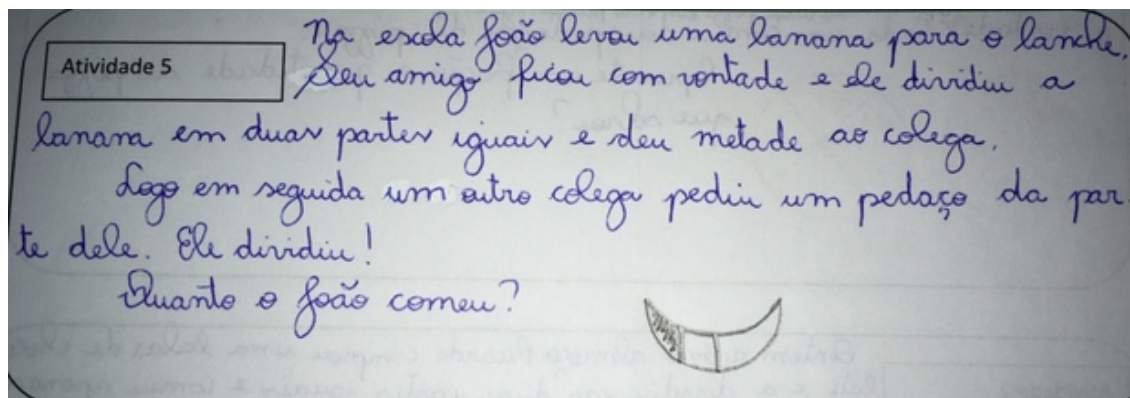 Na escola João levou uma banana para o lanche.
Atividade 5
Seu amigo ficou com vontade e ele dividiu a
banana em duas partes iguais e deu metade ao colega.
Logo em seguida um outro colega pediu um pedaço da par
te dele. Ele dividiu!
Quanto o João comeu?